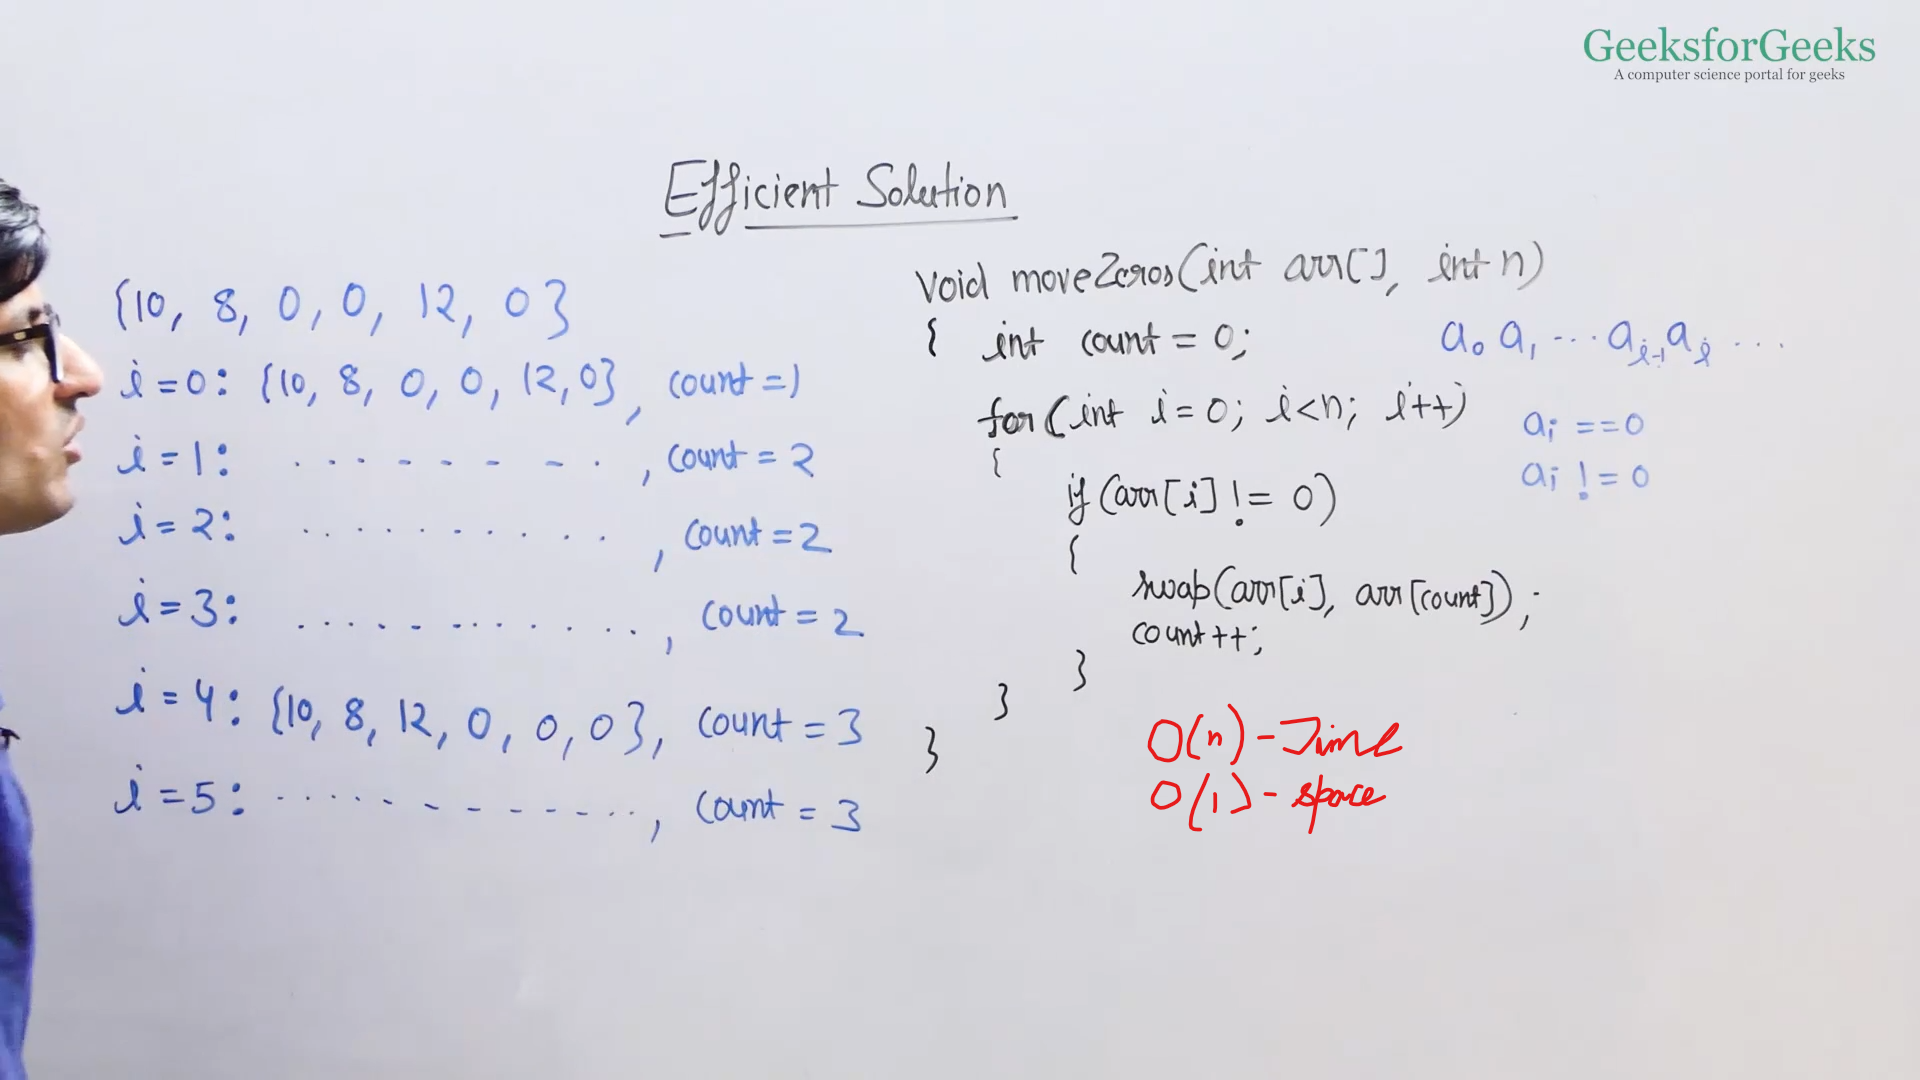 GeeksforGeeks
A computer science portal for geeks
Efficient Solution
{10, 8, 0, 0, 12, 0}
i = 0: {10, 8, 0, 0, 12, 0}, count = 1
i = 1: . . . . - - - - - . . , count = 2
i = 2: . . . . . . . . . . , count = 2
i = 3: . . . . . . . . . . . . , count = 2
i = 4: {10, 8, 12, 0, 0, 0}, count = 3
i = 5: . . . . . - - - - - . . . , count = 3
void moveZeros(int arr[], int n)
{ int count = 0;
for(int i = 0; i<n; i++)
{
if (arr[i] != 0)
{
swap(arr[i], arr[count]);
count++;
}
}
}
a₀ a₁ ... aᵢ₋₁ aᵢ ...
aᵢ == 0
aᵢ != 0
O(n) - Time
O(1) - space